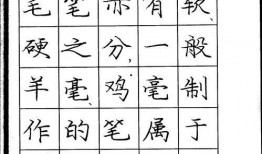 毛笔亦有软、
硬之分,一般
羊毫、鸡毫制
作的笔属于